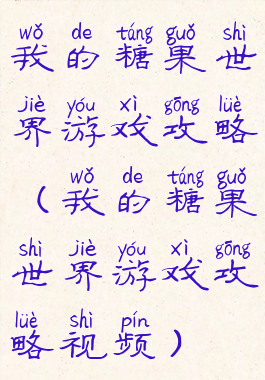 wǒ de táng guǒ shì
我的糖果世
jiè yóu xì gōng lüè
界游戏攻略
wǒ de táng guǒ
（我的糖果
shì jiè yóu xì gōng
世界游戏攻
lüè shì pín
略视频）